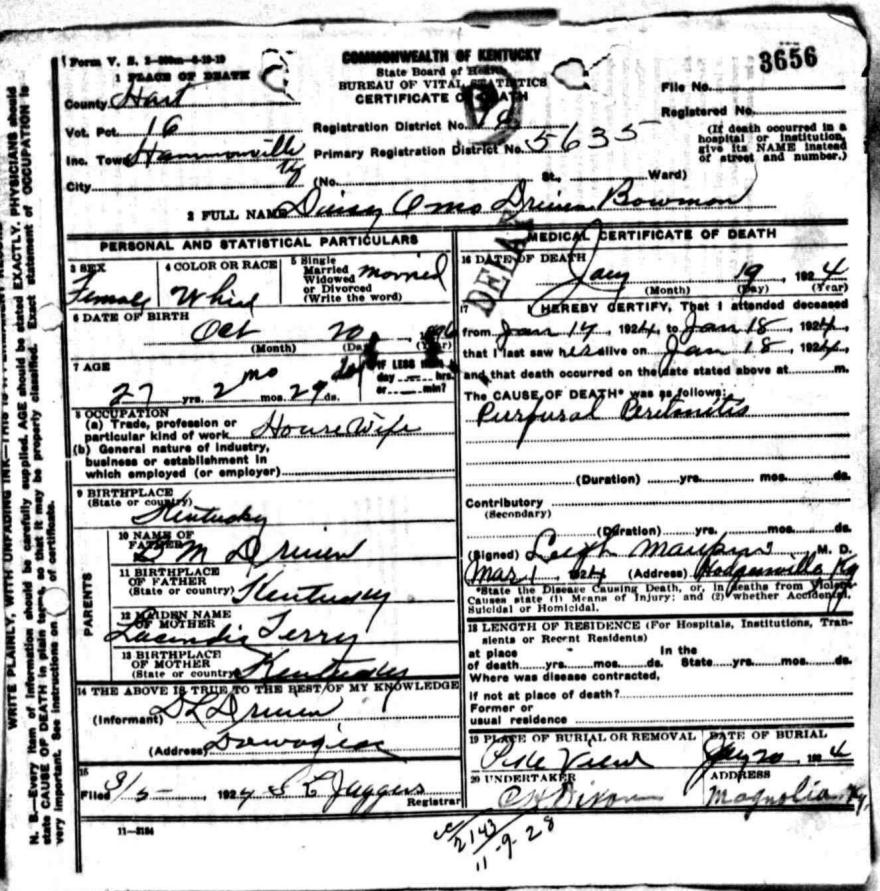 3656
Form V. S. 2—500m—6-19-19
COMMONWEALTH OF KENTUCKY
State Board of Health
BUREAU OF VITAL STATISTICS
CERTIFICATE OF DEATH
1 PLACE OF DEATH
County Hart
Vot. Pct. 16
Inc. Town Hammonville Ky
City
Registration District No.
Primary Registration District No. 5635
(No. St., Ward)
File No.
Registered No.
(If death occurred in a
hospital or institution,
give its NAME instead
of street and number.)
2 FULL NAME Daisy Oma Driver Bowman
PERSONAL AND STATISTICAL PARTICULARS
3 SEX
Female
4 COLOR OR RACE
White
5 Single
Married
Widowed
or Divorced
(Write the word)
Married
6 DATE OF BIRTH
Oct 20
(Month) (Day) (Year)
7 AGE
27 yrs. 2 mos. 29 ds.
IF LESS than
day hrs.
or min?
8 OCCUPATION
(a) Trade, profession or
particular kind of work House Wife
(b) General nature of industry,
business or establishment in
which employed (or employer)
9 BIRTHPLACE
(State or country)
Kentucky
PARENTS
10 NAME OF
FATHER
M Driver
11 BIRTHPLACE
OF FATHER
(State or country) Kentucky
12 MAIDEN NAME
OF MOTHER
Lucinda Terry
13 BIRTHPLACE
OF MOTHER
(State or country) Kentucky
14 THE ABOVE IS TRUE TO THE BEST OF MY KNOWLEDGE
(Informant) D L Driver
(Address)
15
Filed 3/5, 1924 S E Jaggers
Registrar
11—3184
MEDICAL CERTIFICATE OF DEATH
DELAY
16 DATE OF DEATH
Jany 19, 1924
(Month) (Day) (Year)
17 I HEREBY CERTIFY, That I attended deceased
from Jan 14, 1924, to Jan 18, 1924,
that I last saw her alive on Jan 18, 1924,
and that death occurred on the date stated above at m.
The CAUSE OF DEATH* was as follows:
Purpural Peritonitis
(Duration) yrs. mos. ds.
Contributory
(Secondary)
(Duration) yrs. mos. ds.
(Signed) Leigh Maupins M. D.
Mar 1 1924 (Address) Hodgenville Ky
*State the Disease Causing Death, or, in deaths from Violent
Causes state (1) Means of Injury; and (2) whether Accidental,
Suicidal or Homicidal.
18 LENGTH OF RESIDENCE (For Hospitals, Institutions, Tran-
sients or Recent Residents)
at place In the
of death yrs. mos. ds. State yrs. mos. ds.
Where was disease contracted,
if not at place of death?
Former or
usual residence
19 PLACE OF BURIAL OR REMOVAL
Pike View
DATE OF BURIAL
Jany 20, 1924
20 UNDERTAKER
C H Dixon
ADDRESS
Magnolia Ky.
2143
11-9-28
WRITE PLAINLY, WITH UNFADING INK—THIS IS A PERMANENT RECORD
N. B.—Every item of information should be carefully supplied. AGE should be stated EXACTLY. PHYSICIANS should
state CAUSE OF DEATH in plain terms, so that it may be properly classified. Exact statement of OCCUPATION is
very important. See instructions on of certificate.